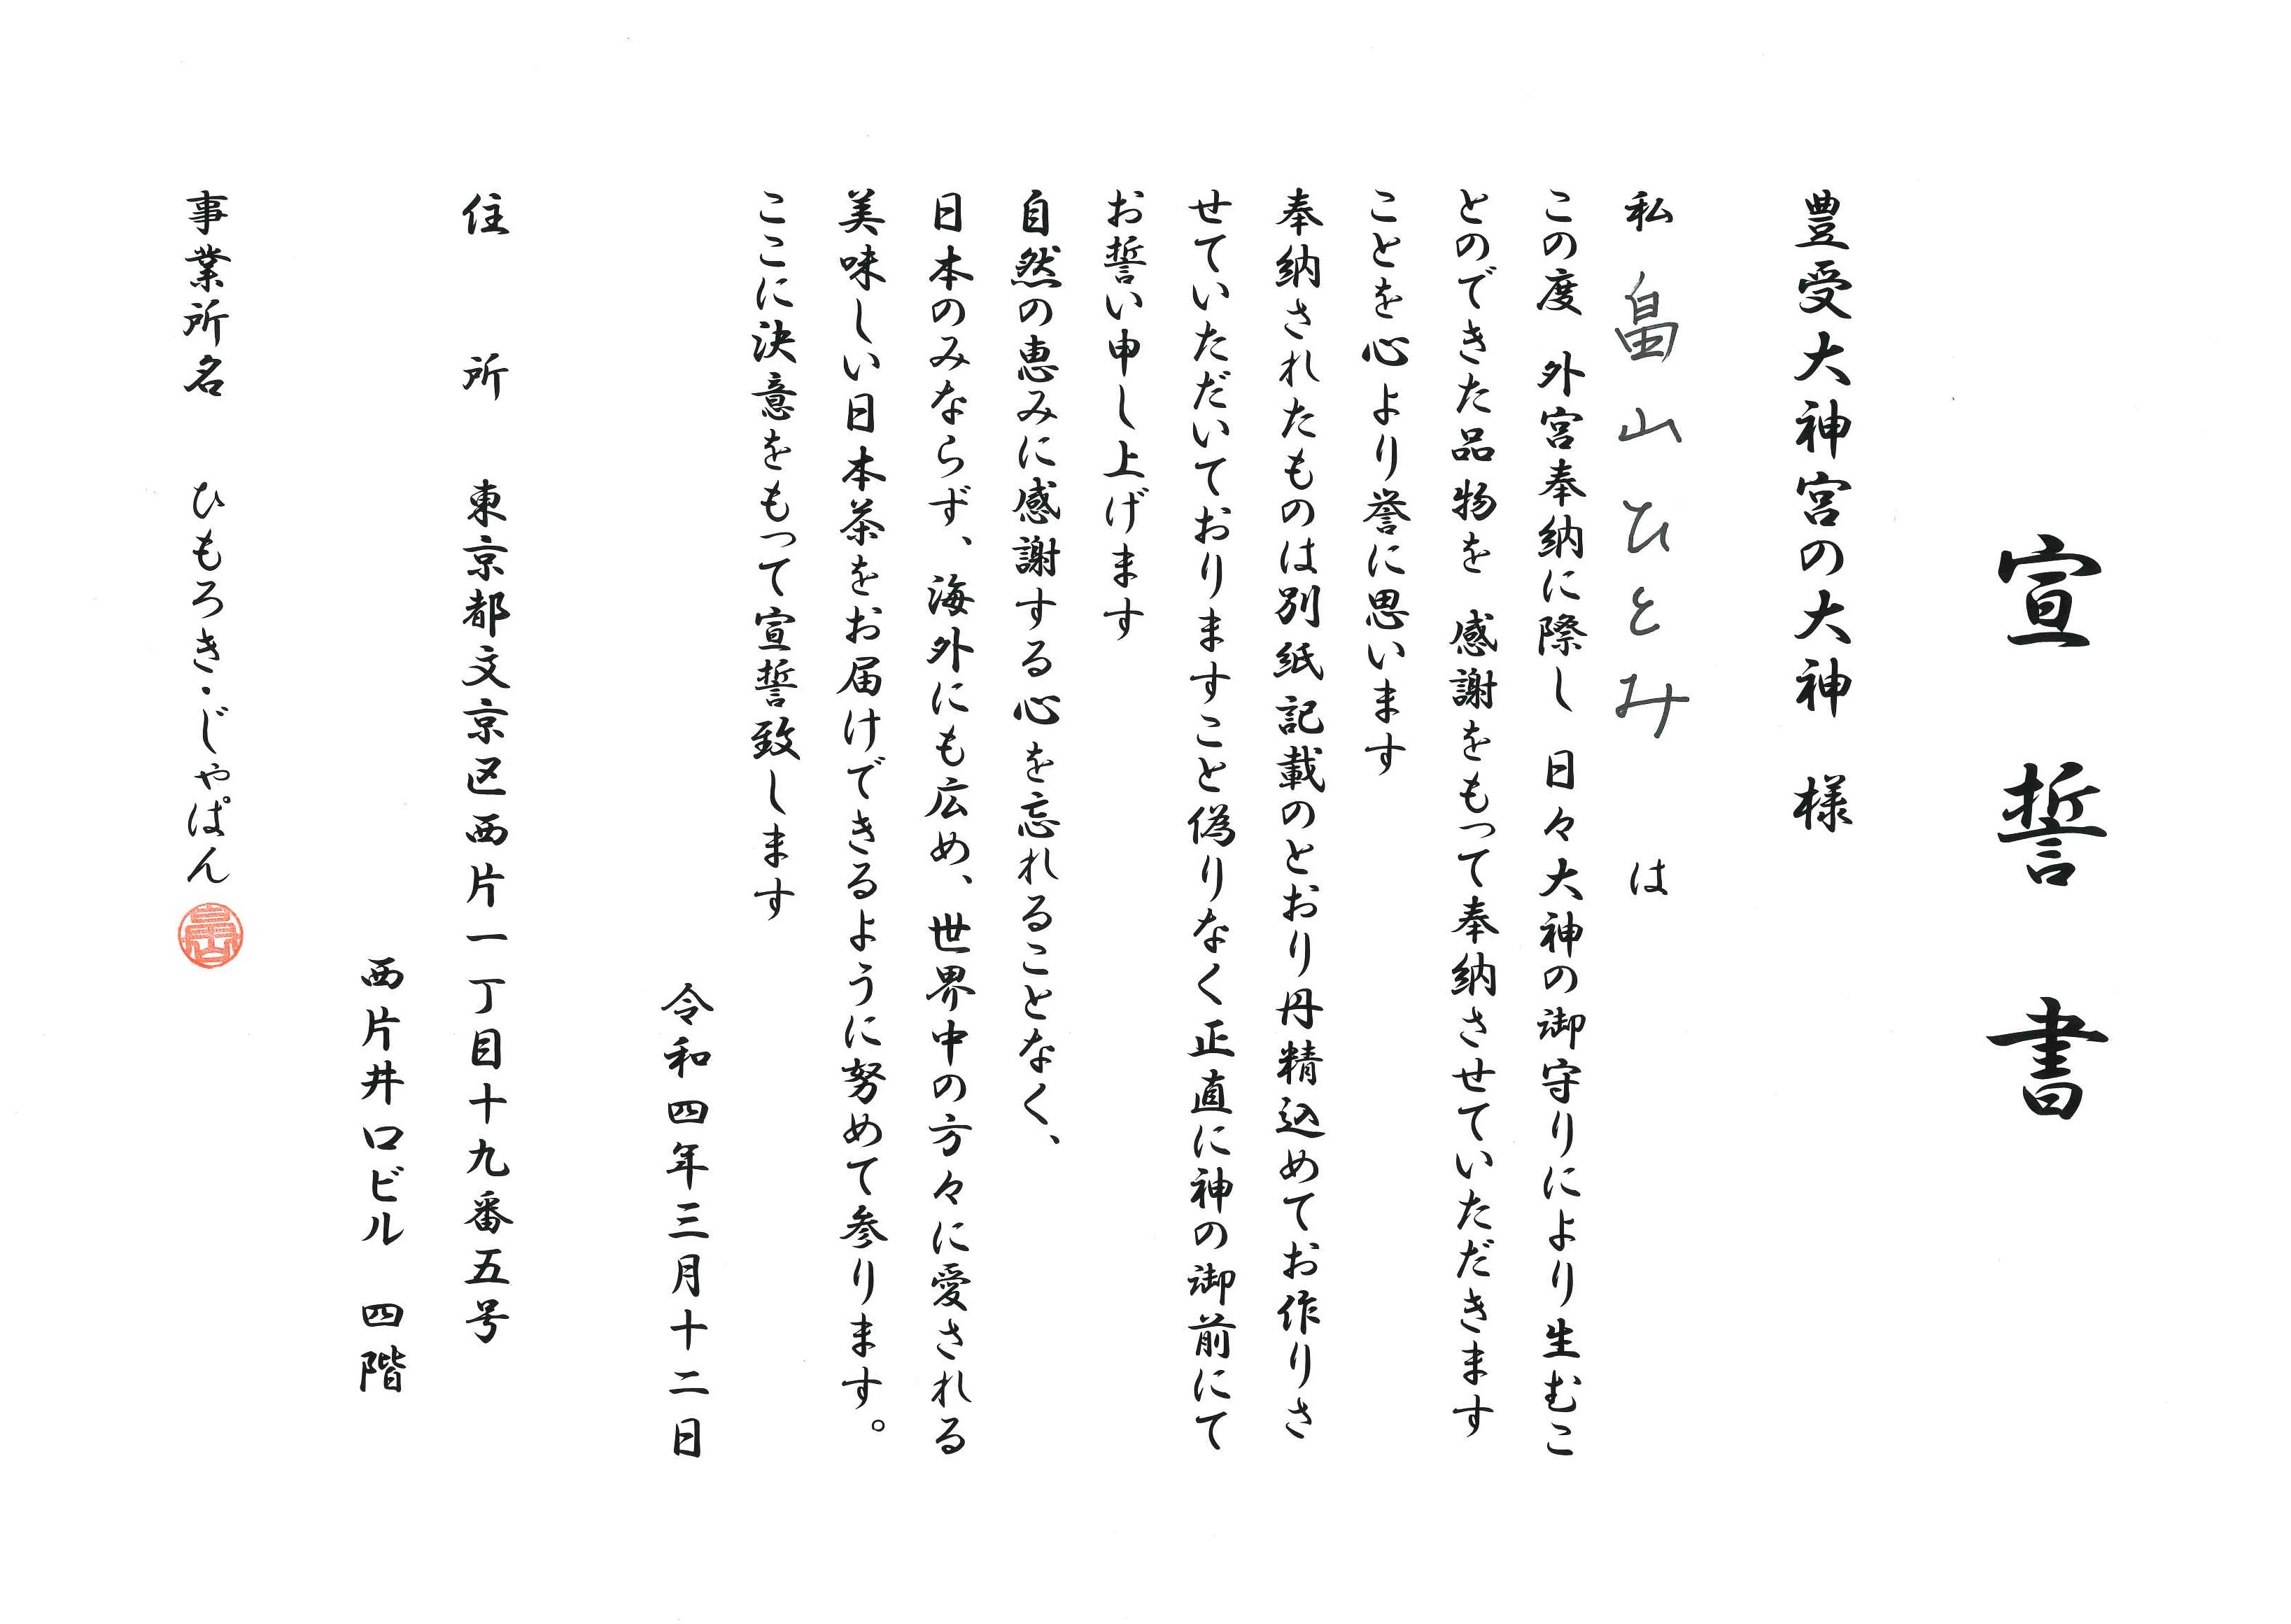 宣誓書
豊受大神宮の大神 様
私 畠山ひとみ は
この度 外宮奉納に際し 日々大神の御守りにより生むこ
とのできた品物を 感謝をもって奉納させていただきます
ことを心より誉に思います
奉納されたものは別紙記載のとおり丹精込めてお作りさ
せていただいておりますこと偽りなく正直に神の御前にて
お誓い申し上げます
自然の恵みに感謝する心を忘れることなく、
日本のみならず、海外にも広め、世界中の方々に愛される
美味しい日本茶をお届けできるように努めて参ります。
ここに決意をもって宣誓致します
令和四年三月十二日
住所 東京都文京区西片一丁目十九番五号
西片井口ビル 四階
事業所名 ひもろき・じゃぱん